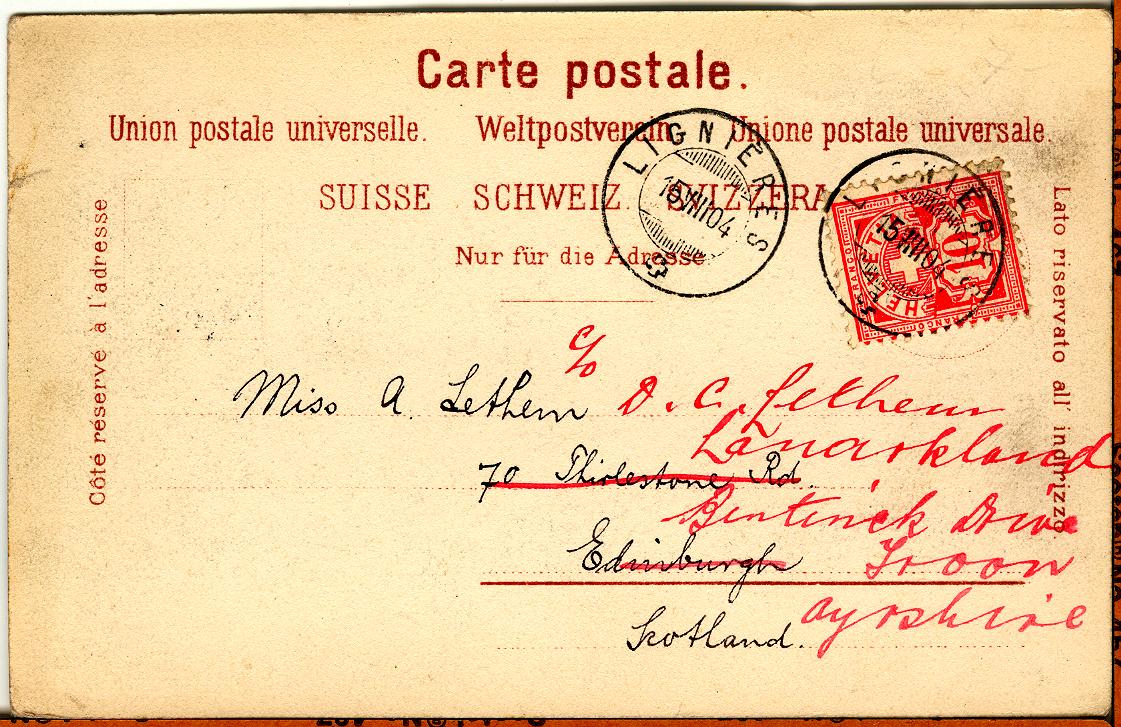 Carte postale.
Union postale universelle. Weltpostverein. Unione postale universale.
SUISSE SCHWEIZ. SVIZZERA
Nur für die Adresse
Côté réservé à l'adresse
Lato riservato all' indirizzo.
LIGNIERES
15 VIII 04
LIGNIERES
15 VIII 04
FRANCO
HELVETIA
10
FRANCO
c/o
Miss A. Lethem D. C. Lethem
Lanarkland
70 Thirlestone Rd.
Bentinck Drive
Edinburgh Troon
Scotland. Ayrshire